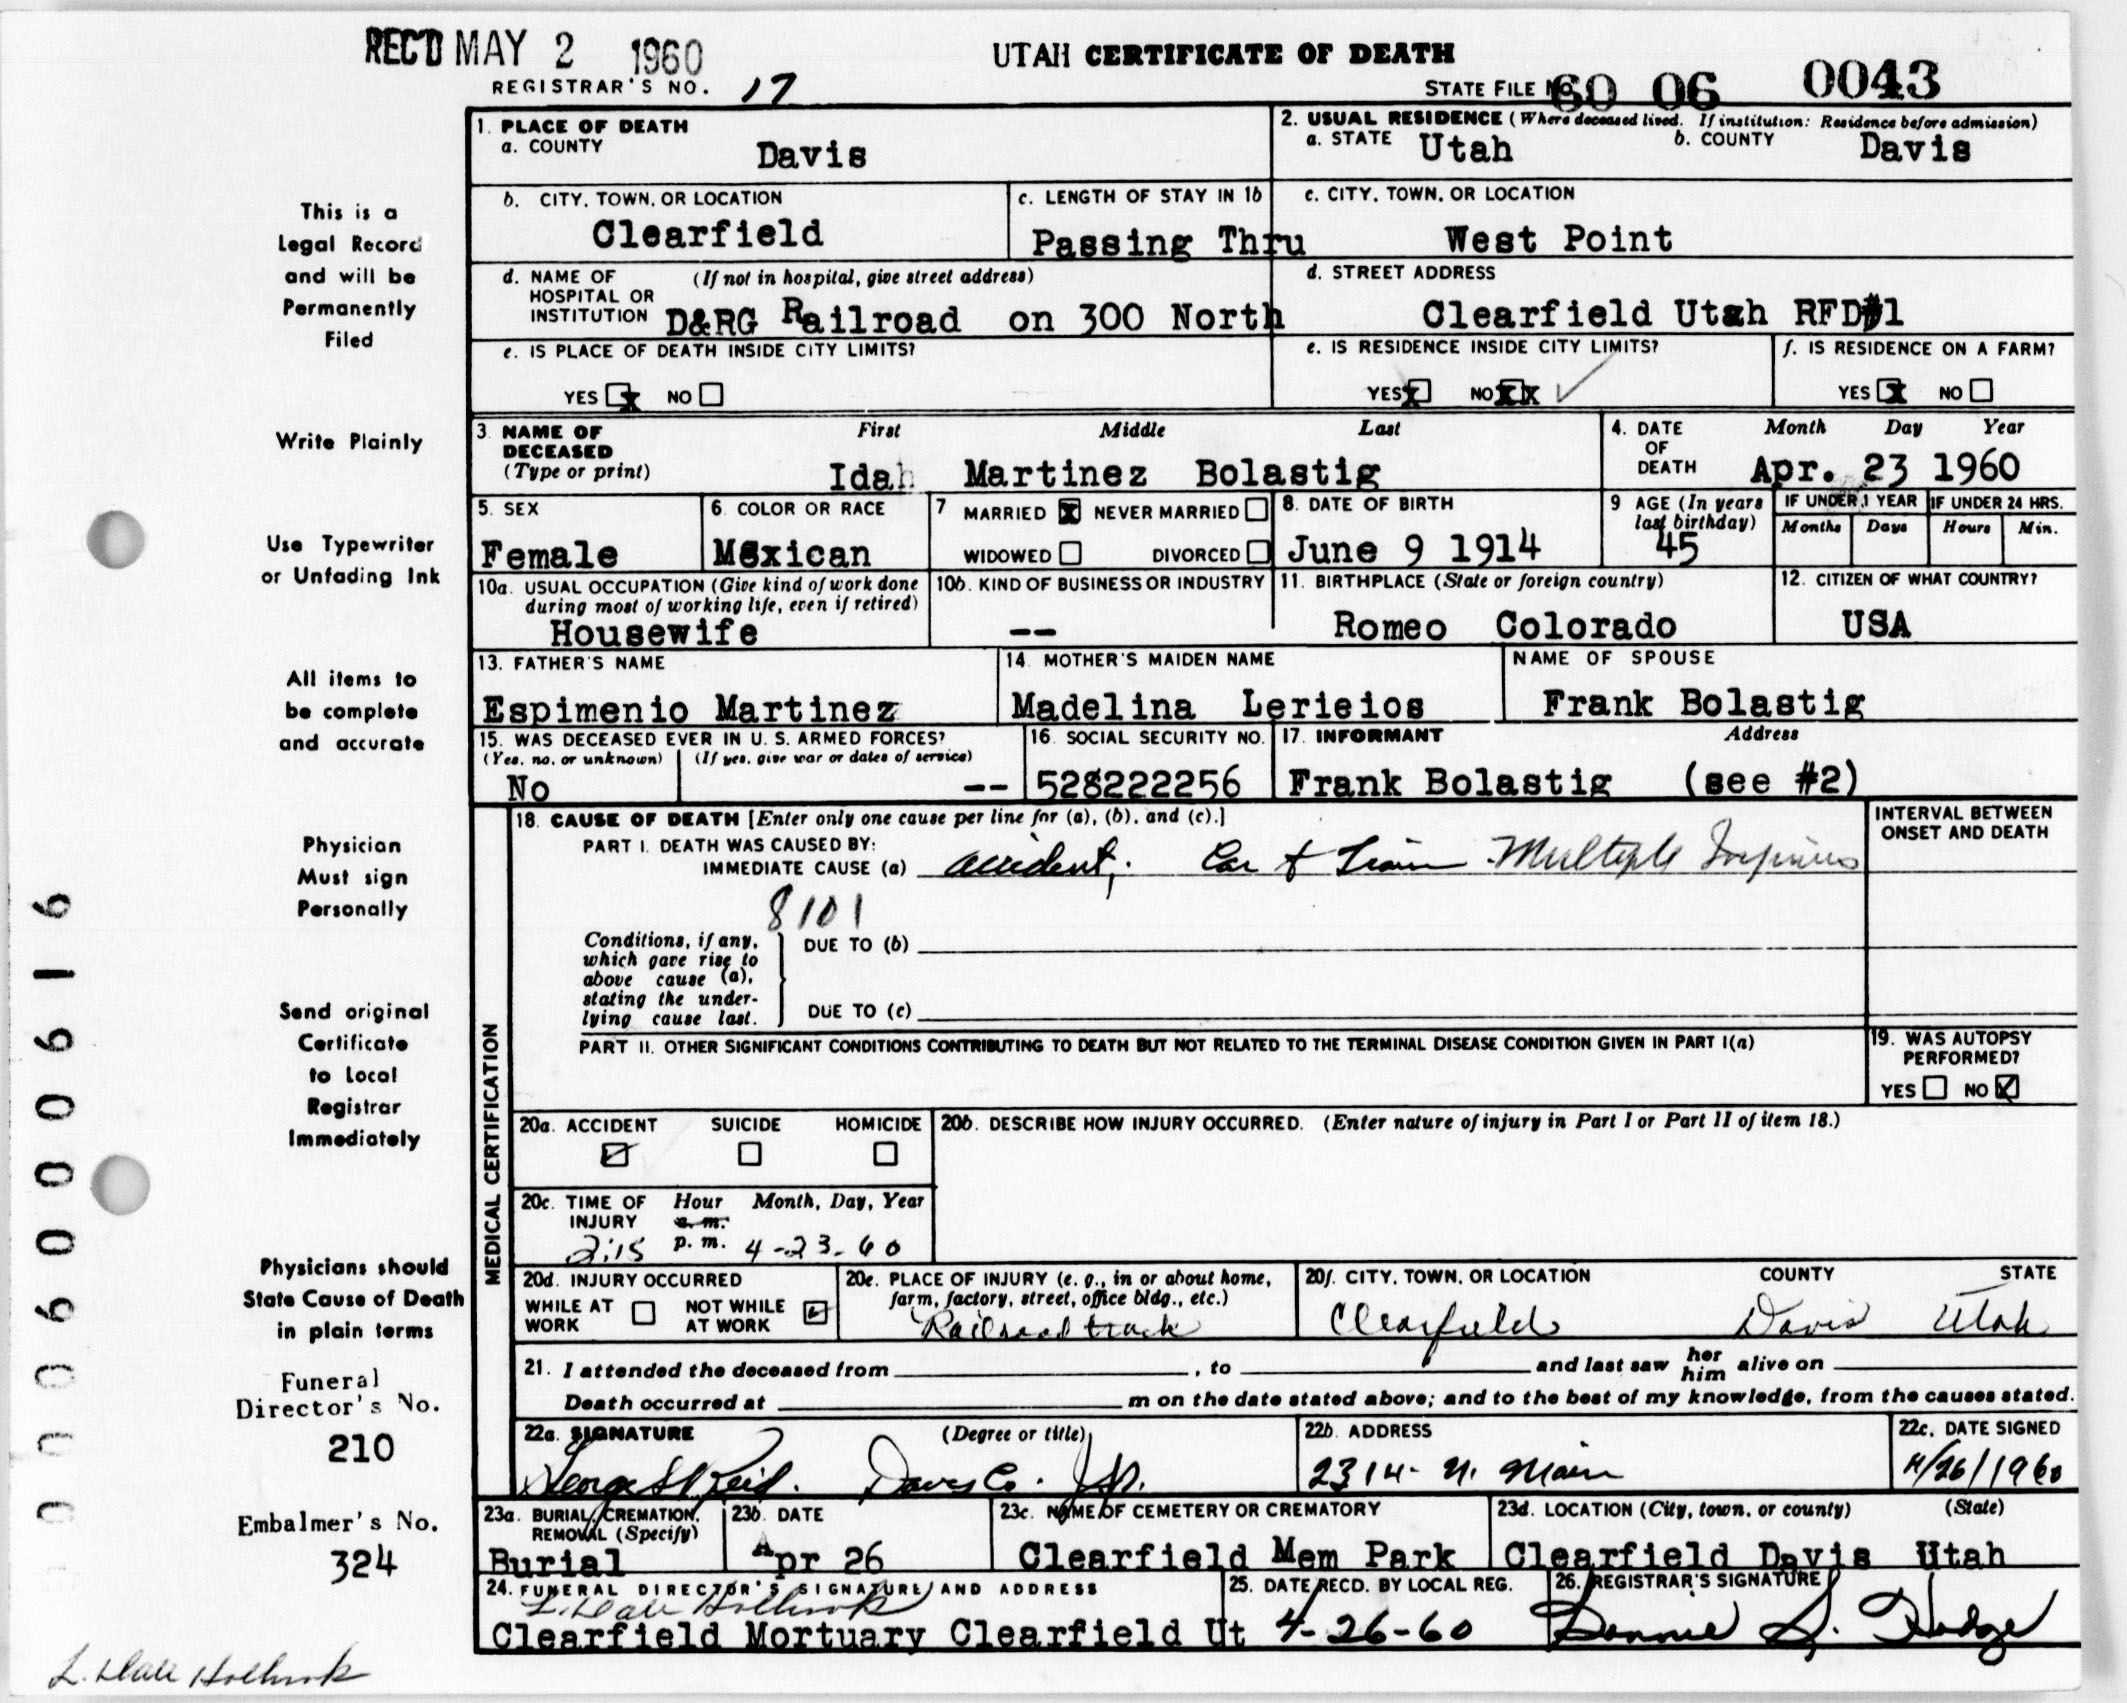 REC'D MAY 2 1960
UTAH CERTIFICATE OF DEATH
REGISTRAR'S NO. 17
STATE FILE NO. 60 06 0043
1. PLACE OF DEATH
a. COUNTY
Davis
2. USUAL RESIDENCE (Where deceased lived. If institution: Residence before admission)
a. STATE Utah b. COUNTY Davis
b. CITY, TOWN, OR LOCATION
Clearfield
c. LENGTH OF STAY IN 1b
Passing Thru
c. CITY, TOWN, OR LOCATION
West Point
d. NAME OF HOSPITAL OR INSTITUTION (If not in hospital, give street address)
D&RG Railroad on 300 North
d. STREET ADDRESS
Clearfield Utah RFD#1
e. IS PLACE OF DEATH INSIDE CITY LIMITS?
YES x NO
e. IS RESIDENCE INSIDE CITY LIMITS?
YES x NO XX
f. IS RESIDENCE ON A FARM?
YES X NO
3. NAME OF DECEASED (Type or print)
First Middle Last
Idah Martinez Bolastig
4. DATE OF DEATH
Month Day Year
Apr. 23 1960
5. SEX
Female
6. COLOR OR RACE
Mexican
7 MARRIED X NEVER MARRIED
WIDOWED DIVORCED
8. DATE OF BIRTH
June 9 1914
9 AGE (In years last birthday)
45
IF UNDER 1 YEAR
Months Days
IF UNDER 24 HRS.
Hours Min.
10a. USUAL OCCUPATION (Give kind of work done during most of working life, even if retired)
Housewife
10b. KIND OF BUSINESS OR INDUSTRY
--
11. BIRTHPLACE (State or foreign country)
Romeo Colorado
12. CITIZEN OF WHAT COUNTRY?
USA
13. FATHER'S NAME
Espimenio Martinez
14. MOTHER'S MAIDEN NAME
Madelina Lerieios
NAME OF SPOUSE
Frank Bolastig
15. WAS DECEASED EVER IN U. S. ARMED FORCES?
(Yes, no, or unknown) (If yes, give war or dates of service)
No --
16. SOCIAL SECURITY NO.
528222256
17. INFORMANT Address
Frank Bolastig (see #2)
MEDICAL CERTIFICATION
18. CAUSE OF DEATH [Enter only one cause per line for (a), (b), and (c).]
INTERVAL BETWEEN ONSET AND DEATH
PART I. DEATH WAS CAUSED BY:
IMMEDIATE CAUSE (a) accident, Car & Train Multiple Injuries
8101
Conditions, if any, which gave rise to above cause (a), stating the underlying cause last.
DUE TO (b)
DUE TO (c)
PART II. OTHER SIGNIFICANT CONDITIONS CONTRIBUTING TO DEATH BUT NOT RELATED TO THE TERMINAL DISEASE CONDITION GIVEN IN PART I(a)
19. WAS AUTOPSY PERFORMED?
YES NO
20a. ACCIDENT SUICIDE HOMICIDE
20b. DESCRIBE HOW INJURY OCCURRED. (Enter nature of injury in Part I or Part II of item 18.)
20c. TIME OF INJURY Hour Month, Day, Year
a. m.
2:15 p. m. 4-23-60
20d. INJURY OCCURRED
WHILE AT WORK NOT WHILE AT WORK
20e. PLACE OF INJURY (e. g., in or about home, farm, factory, street, office bldg., etc.)
Railroad track
20f. CITY, TOWN, OR LOCATION COUNTY STATE
Clearfield Davis Utah
21. I attended the deceased from , to and last saw her him alive on
Death occurred at m on the date stated above; and to the best of my knowledge, from the causes stated.
22a. SIGNATURE (Degree or title)
George S Reid. Davis Co. J.P.
22b. ADDRESS
2314- N. Main
22c. DATE SIGNED
4/26/1960
23a. BURIAL, CREMATION, REMOVAL (Specify)
Burial
23b. DATE
Apr 26
23c. NAME OF CEMETERY OR CREMATORY
Clearfield Mem Park
23d. LOCATION (City, town, or county) (State)
Clearfield Davis Utah
24. FUNERAL DIRECTOR'S SIGNATURE AND ADDRESS
L. Dale Holbrook
Clearfield Mortuary Clearfield Ut
25. DATE RECD. BY LOCAL REG.
4-26-60
26. REGISTRAR'S SIGNATURE
Bonnie S. Hodge
This is a
Legal Record
and will be
Permanently
Filed
Write Plainly
Use Typewriter
or Unfading Ink
All items to
be complete
and accurate
Physician
Must sign
Personally
Send original
Certificate
to Local
Registrar
Immediately
Physicians should
State Cause of Death
in plain terms
Funeral
Director's No.
210
Embalmer's No.
324
L. Dale Holbrook